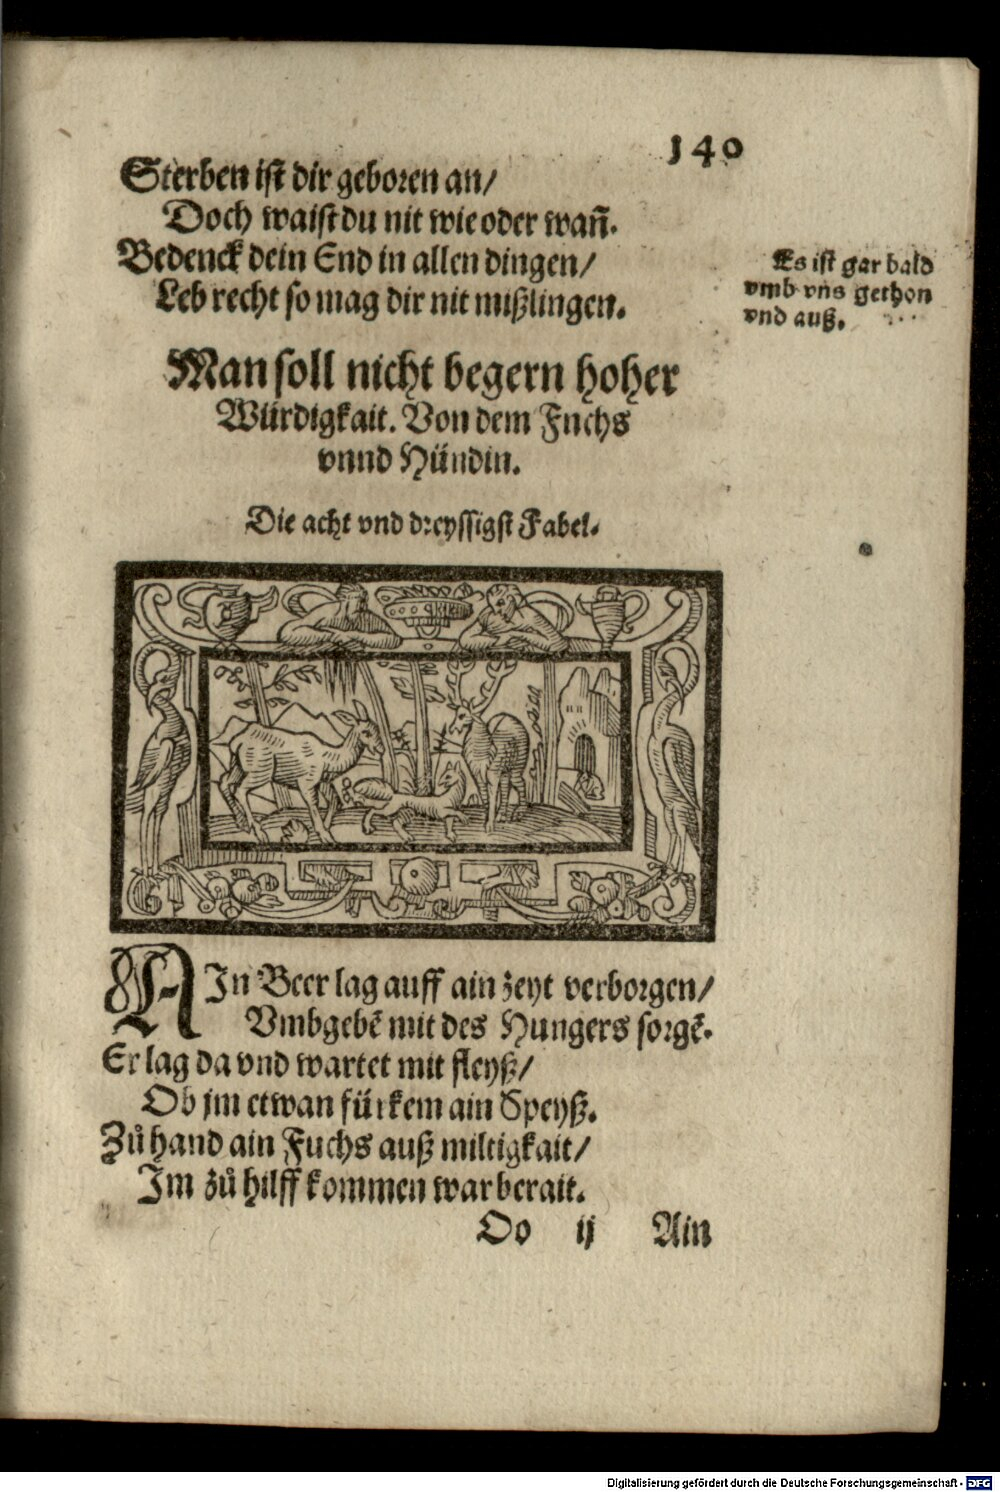 140
Sterben ist dir geboren an/
Doch waist du nit wie oder wañ.
Bedenck dein End in allen dingen/
Leb recht so mag dir nit mißlingen.
Es ist gar bald
vmb vns gethon
vnd auß.
Man soll nicht begern hoher
Würdigkait. Von dem Fuchs
vnnd Hündin.
Die acht vnd dreyssigst Fabel.
AIn Beer lag auff ain zeyt verborgen/
Vmbgebẽ mit des Hungers sorgẽ.
Er lag da vnd wartet mit fleyß/
Ob jm etwan fürkem ain Speyß.
Zů hand ain Fuchs auß miltigkait/
Im zů hilff kommen war berait.
Oo ij Ain
Digitalisierung gefördert durch die Deutsche Forschungsgemeinschaft - DFG